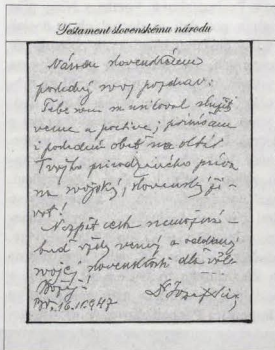 Testament slovenskému národu
Národu slovenskému
posledný svoj pozdrav:
Tebe som sa usiloval slúžiť
verne a poctive; prinášam
i poslednú obeť na oltár
Tvojho prirodzeného práva
na svojský, slovenský ži-
vot!
buď vždy verný a oddaný
svojej slovenskosti dľa vôle
Božej!
Br. 16.II.1947